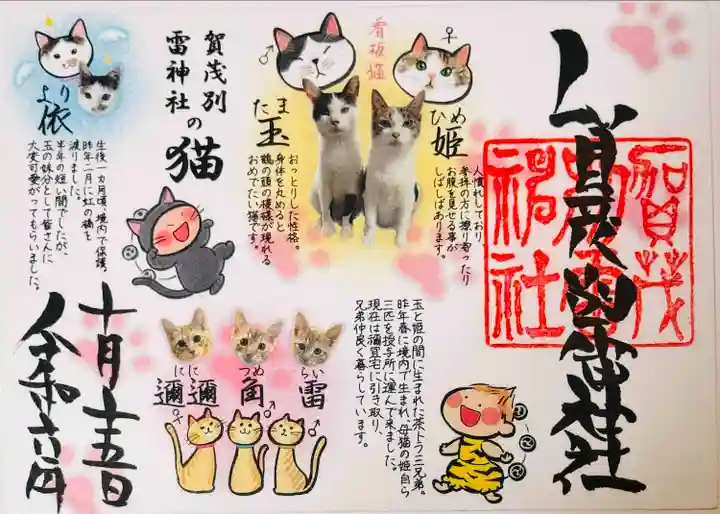 賀茂別雷神社
賀茂
別雷
神社
看板猫
♂
♀
ひめ
姫
人慣れしており
参拝の方に擦り寄ったり
お腹を見せる事が
しばしばあります。
たま
玉
おっとりした性格。
身体を丸めると
鶴の頭の模様が現れる
おめでたい猫です。
賀茂別
雷神社の
猫
より
依
生後一ヵ月頃、境内で保護。
昨年一月に虹の橋を
渡りました。
半年の短い間でしたが、
玉の妹分として皆さんに
大変可愛がってもらいました。
玉と姫の間に生まれた茶トラ三兄弟。
昨年春に境内で生まれ、母猫の姫自ら
三匹を授与所に運んで来ました。
現在は禰宜宅に引き取り、
兄弟仲良く暮らしています。
らい
雷
♂
つめ
角
♂
にに
邇邇
♀
令和六年
十月十五日